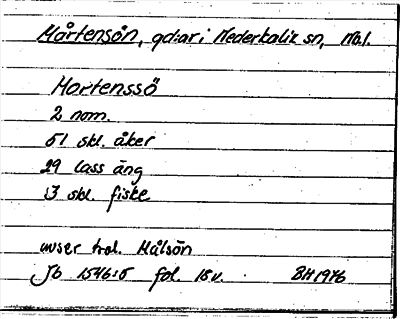 Mårtensön, gdar i Nederkalix sn, Nbl.
Mortenssö
2 nom.
51 skl. åker
29 lass äng
3 skl. fiske
avser trol. Målsön
Jb 1546:5 fol. 18 v. BH 1976